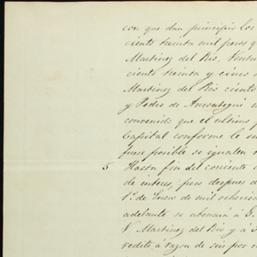 con que dan principio los
ciento treinta mil pesos q
Martinez del Rio, Ventu
ciento treinta y cinco
Martinez del Rio ciento
y Pedro de Ansoategui en
convenido que el ultimo
Capital conforme le
fuere posible se igualen
5 Hasta fin del corriente
de interes, pero despues d
1º de Enero de mil ochocien
adelante se abonará á G.
V Martinez del Rio y á
redito á razon de seis por